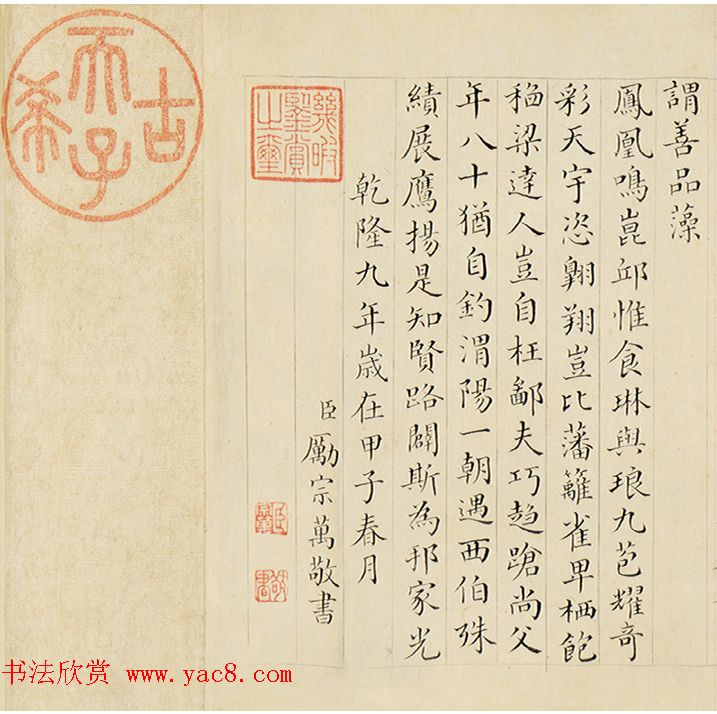 謂善品藻
鳳凰鳴崑邱惟食琳與琅九苞耀奇
彩天宇恣翺翔豈比藩籬雀卑栖飽
稏粱達人豈自枉鄙夫巧趨蹌尚父
年八十猶自釣渭陽一朝遇西伯殊
績展鷹揚是知賢路闢斯為邦家光
乾隆九年歲在甲子春月
臣勵宗萬敬書
幾暇鑒賞之璽
古希天子
書法欣賞 www.yac8.com